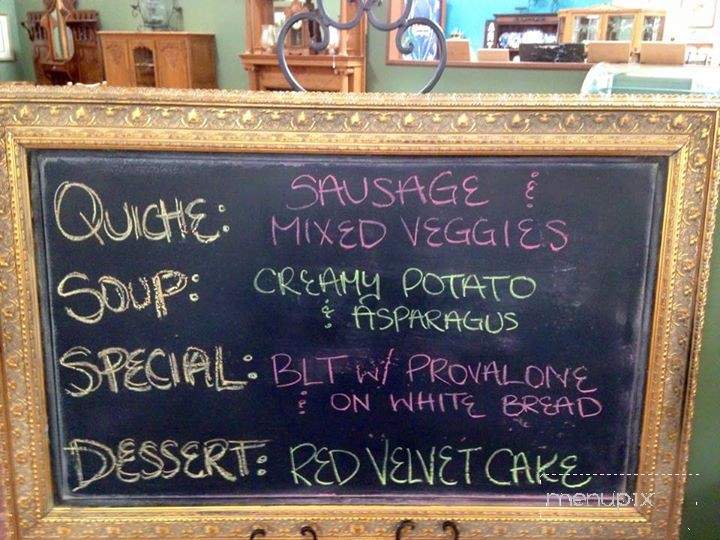 QUICHE: SAUSAGE &
MIXED VEGGIES
SOUP: CREAMY POTATO
& ASPARAGUS
SPECIAL: BLT w/ PROVALONE
& ON WHITE BREAD
DESSERT: RED VELVET CAKE
menupix